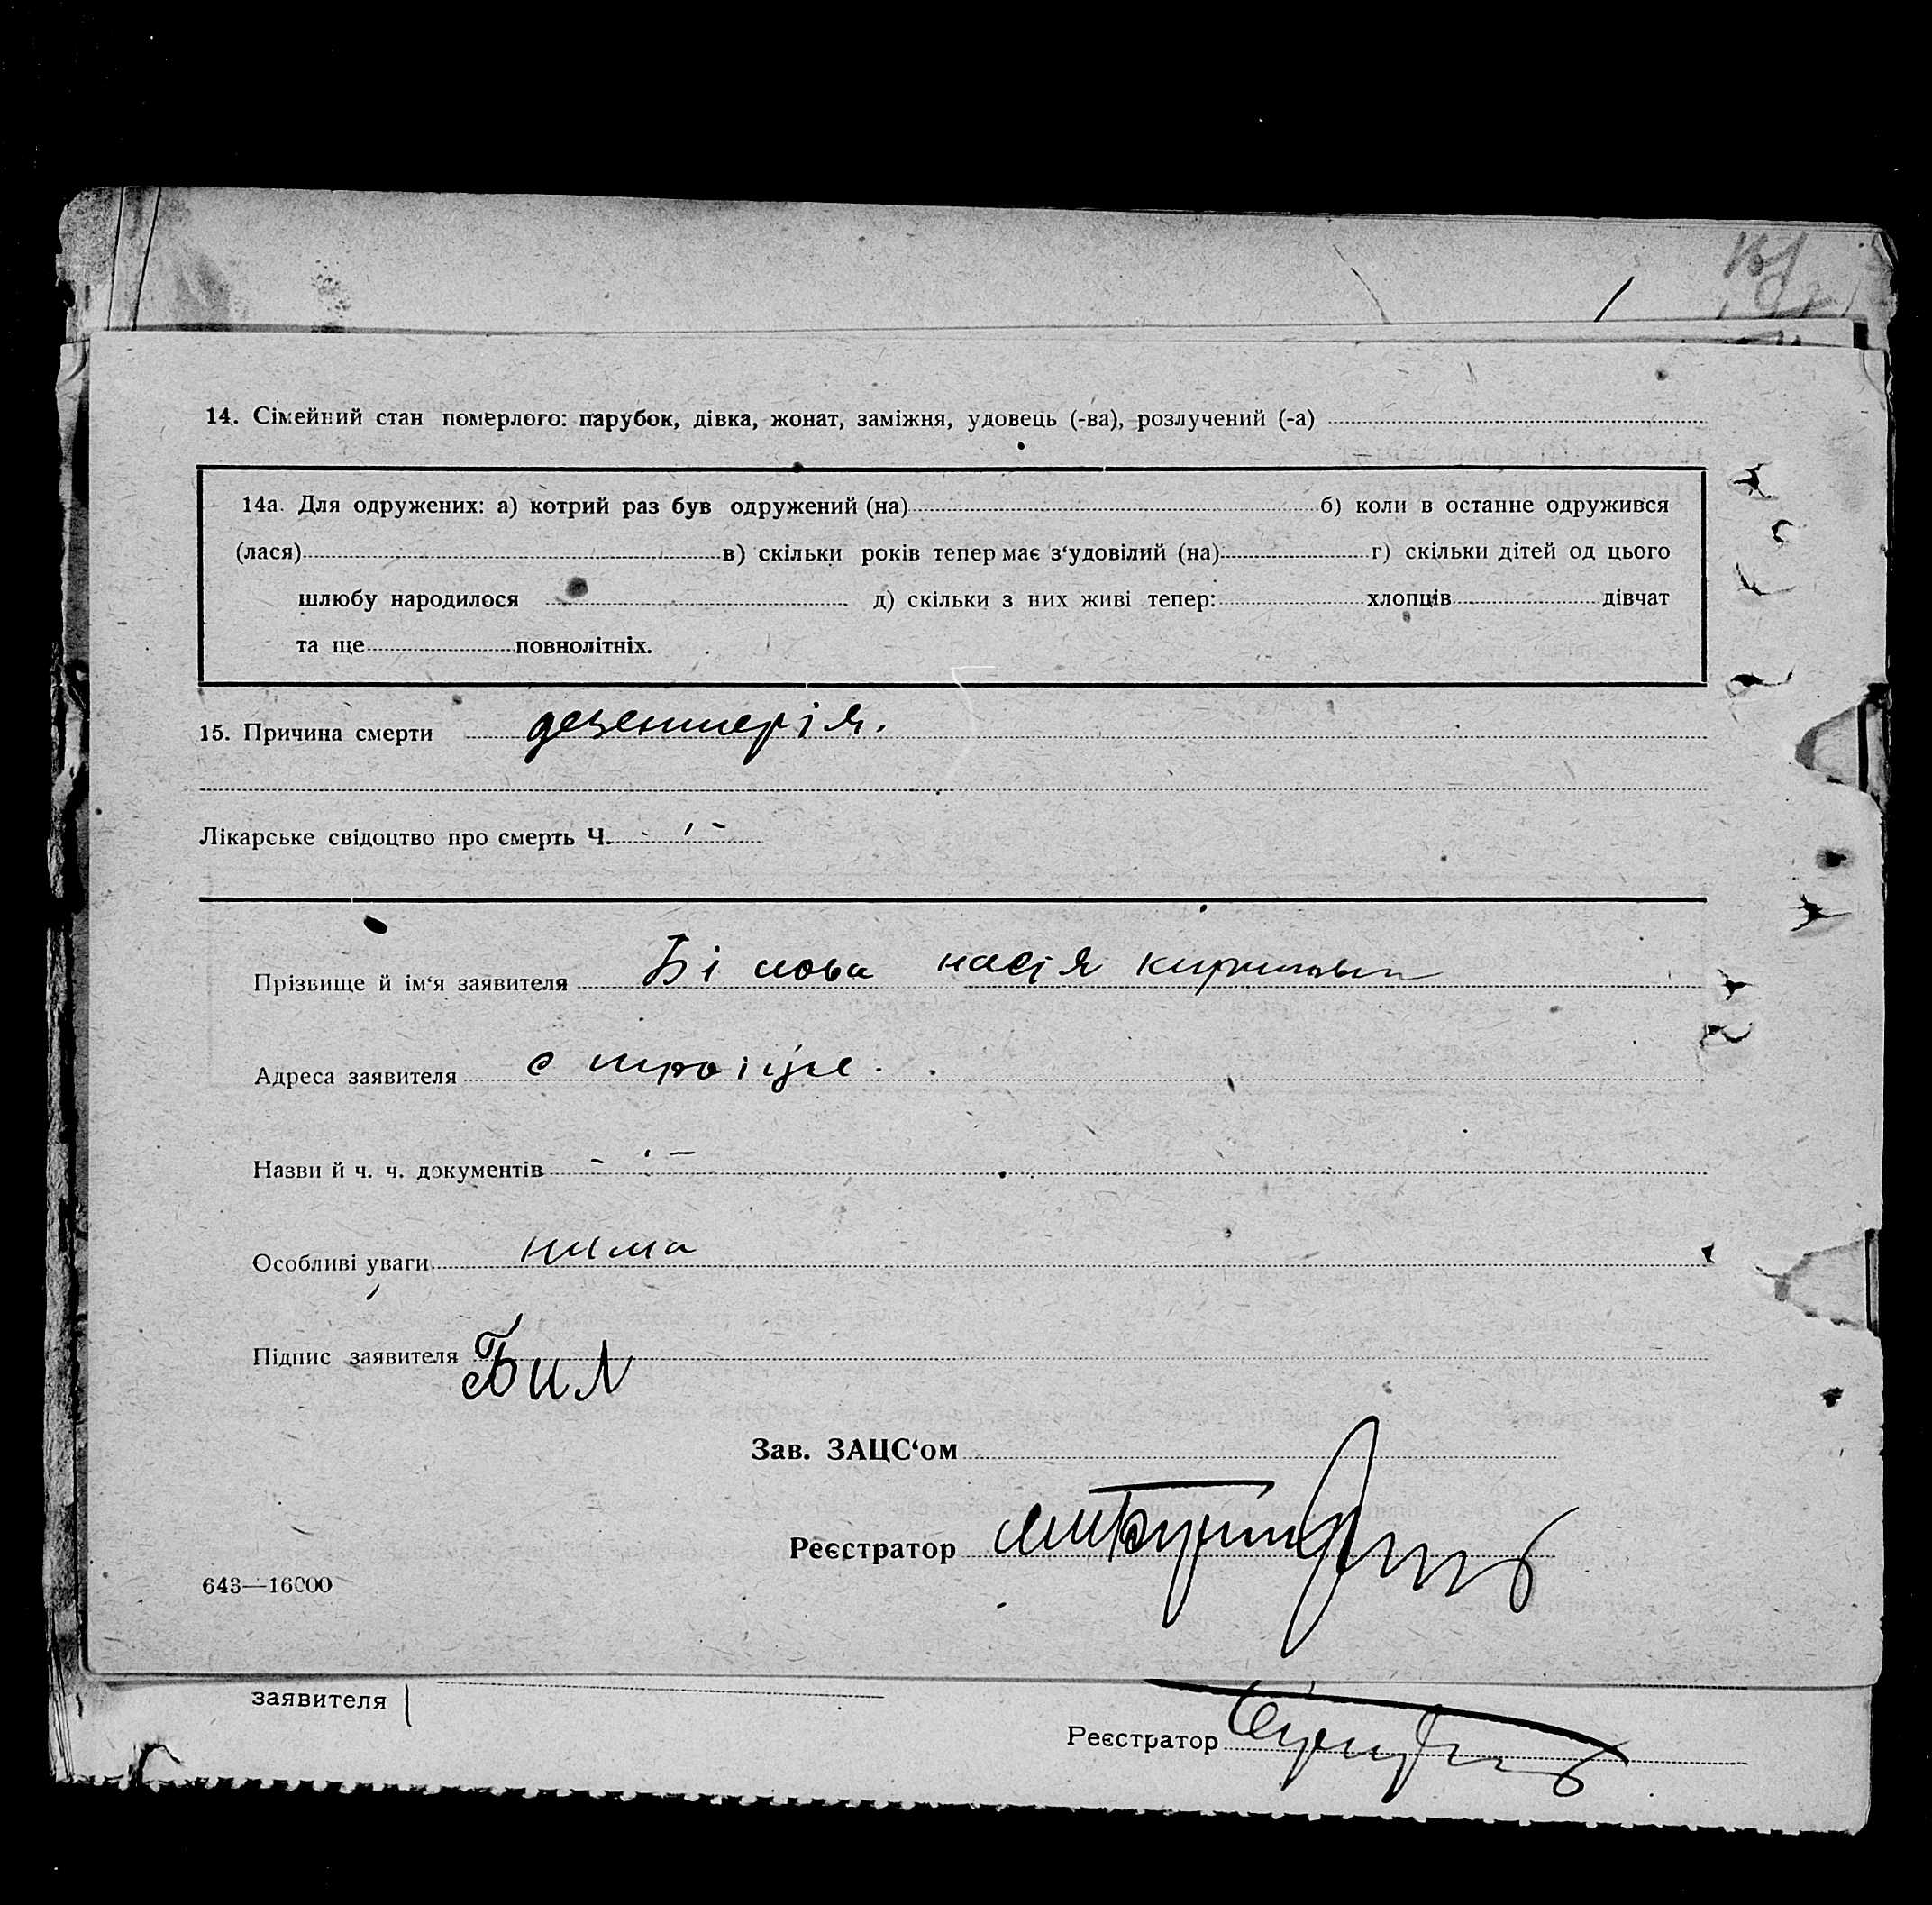 14. Сімейний стан померлого: парубок, дівка, жонат, заміжня, удовець (-ва), розлучений (-а)
14а. Для одружених: а) котрий раз був одружений (на) б) коли в останне одружився
(лася) в) скільки років тепер має з‘удовілий (на) г) скільки дітей од цього
шлюбу народилося д) скільки з них живі тепер: хлопців дівчат
та ще повнолітніх.
15. Причина смерти дезентерія.
Лікарське свідоцтво про смерть Ч.
Прізвище й ім‘я заявителя Білова настя
Адреса заявителя с троіцке.
Назви й ч. ч. документів
Особливі уваги нима
Підпис заявителя Бил
Зав. ЗАЦС‘ом
Реєстратор
643—16000
заявителя
Реєстратор